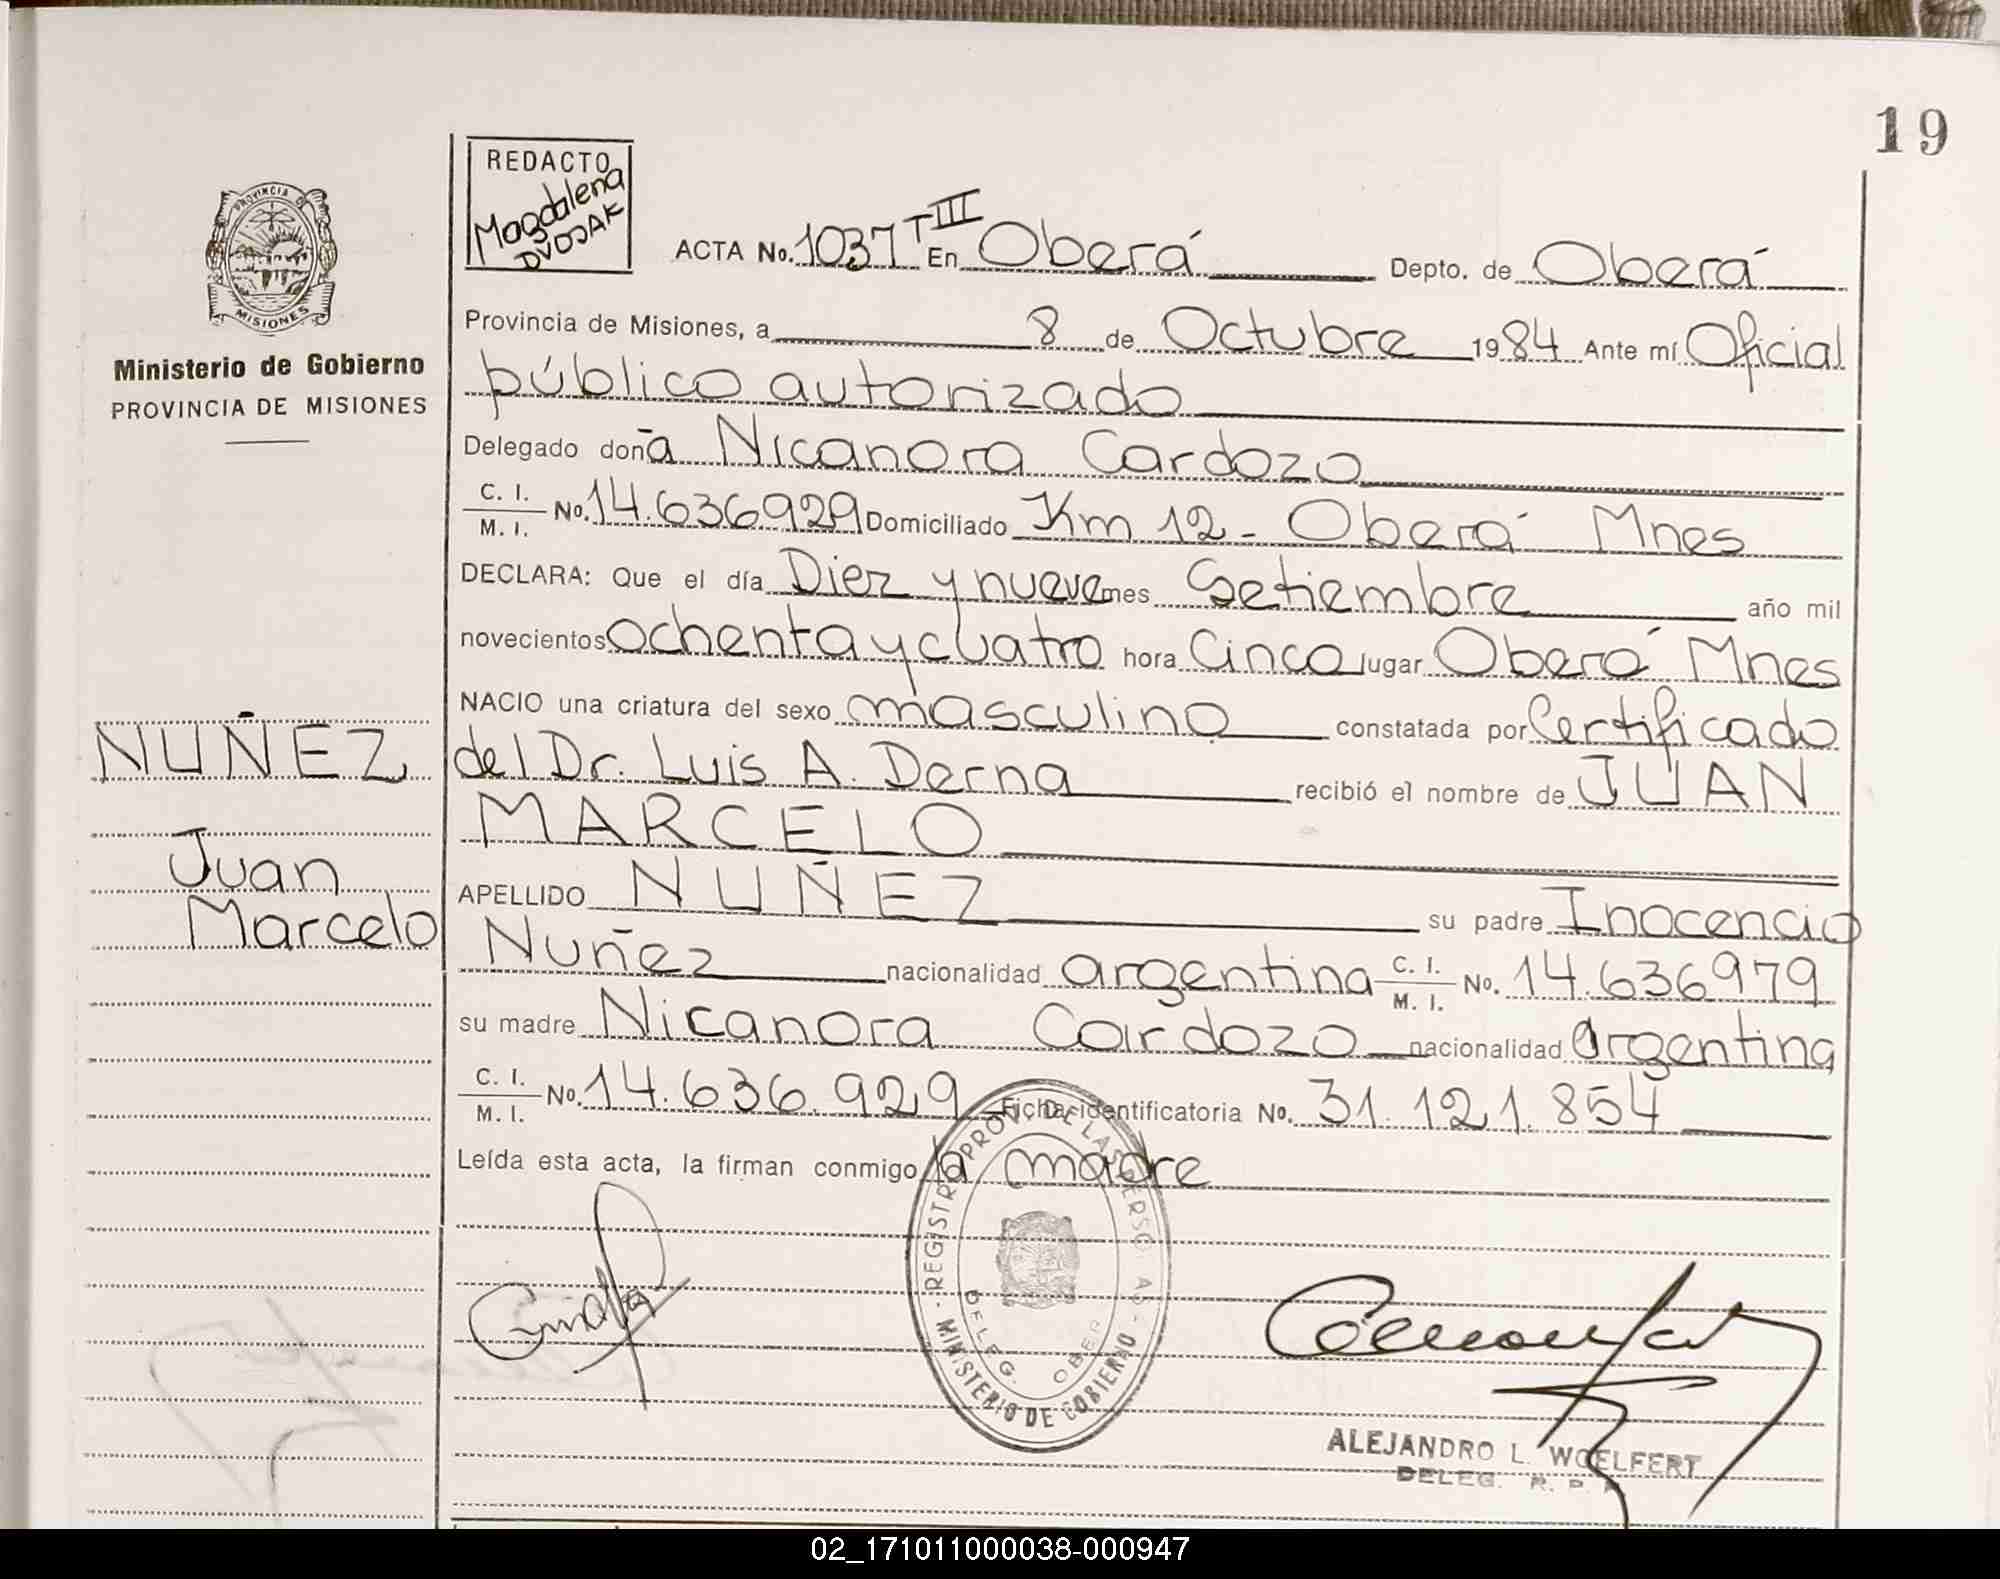 19
REDACTO
Magdalena
DVOJAK
PROVINCIA D
MISIONES
Ministerio de Gobierno
PROVINCIA DE MISIONES
ACTA No. 1037 T III En Oberá Depto. de Oberá
Provincia de Misiones, a 8 de Octubre 1984 Ante mí Oficial
público autorizado
Delegado doña Nicanora Cardozo
C. I. / M. I. No. 14.636929 Domiciliado Km 12 - Oberá Mnes
DECLARA: Que el día Diez y nueve mes Setiembre año mil
novecientos ochenta y cuatro hora Cinco lugar Oberá Mnes
NACIO una criatura del sexo masculino constatada por Certificado
del Dr. Luis A. Derna recibió el nombre de JUAN
MARCELO
APELLIDO NUÑEZ su padre Inocencio
Nuñez nacionalidad argentina C. I. / M. I. No. 14.636979
su madre Nicanora Cardozo nacionalidad argentina
C. I. / M. I. No. 14.636.929 Ficha identificatoria No. 31.121.854
Leída esta acta, la firman conmigo la madre
NUÑEZ
Juan
Marcelo
REGISTR PROV. DE LAS PERSO AS
MINISTERIO DE GOBIERNO
DELEG. OBER
ALEJANDRO L. WOELFERT
DELEG. R. P.
02_171011000038-000947